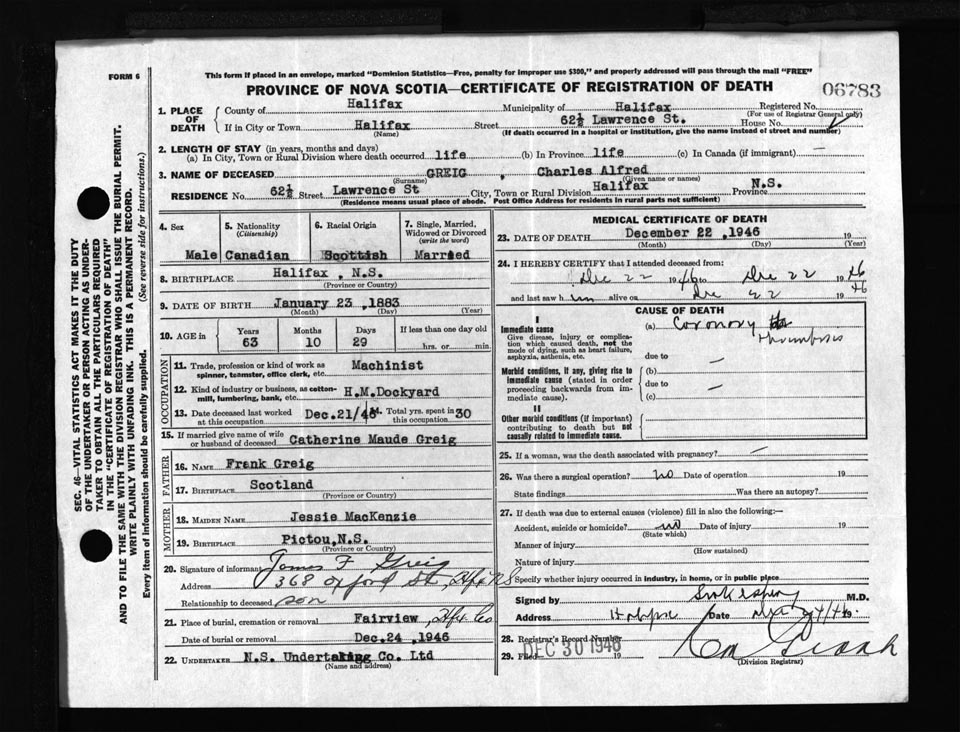 FORM 6
This form if placed in an envelope, marked "Dominion Statistics—Free, penalty for improper use $300," and properly addressed will pass through the mail "FREE"
PROVINCE OF NOVA SCOTIA—CERTIFICATE OF REGISTRATION OF DEATH
06783
1. PLACE OF DEATH
County of Halifax Municipality of Halifax Registered No.
(For use of Registrar General only)
If in City or Town Halifax Street 62½ Lawrence St. House No.
(Name) (If death occurred in a hospital or institution, give the name instead of street and number)
2. LENGTH OF STAY (in years, months and days)
(a) In City, Town or Rural Division where death occurred life (b) In Province life (c) In Canada (if immigrant) —
3. NAME OF DECEASED GREIG , Charles Alfred
(Surname) (Given name or names)
RESIDENCE No. 62½ Street Lawrence St City, Town or Rural Division Halifax Province N.S.
(Residence means usual place of abode. Post Office Address for residents in rural parts not sufficient)
4. Sex Male
5. Nationality (Citizenship) Canadian
6. Racial Origin Scottish
7. Single, Married, Widowed or Divorced (write the word) Married
8. BIRTHPLACE Halifax , N.S.
(Province or Country)
9. DATE OF BIRTH January 23 ,1883
(Month) (Day) (Year)
10. AGE in Years Months Days If less than one day old
63 10 29 hrs. or min.
OCCUPATION
11. Trade, profession or kind of work as spinner, teamster, office clerk, etc. Machinist
12. Kind of industry or business, as cotton-mill, lumbering, bank, etc. H.M.Dockyard
13. Date deceased last worked at this occupation Dec.21/46 14. Total yrs. spent in this occupation 30
15. If married give name of wife or husband of deceased Catherine Maude Greig
FATHER
16. NAME Frank Greig
17. BIRTHPLACE Scotland
(Province or Country)
MOTHER
18. MAIDEN NAME Jessie MacKenzie
19. BIRTHPLACE Pictou,N.S.
(Province or Country)
20. Signature of informant James F Greig
Address 368 Oxford St, Hfx N S
Relationship to deceased son
21. Place of burial, cremation or removal Fairview, Hfx Co
Date of burial or removal Dec.24 ,1946
22. UNDERTAKER N.S. Undertaking Co. Ltd
(Name and address)
MEDICAL CERTIFICATE OF DEATH
23. DATE OF DEATH December 22 ,1946 19
(Month) (Day) (Year)
24. I HEREBY CERTIFY that I attended deceased from:
Dec 22 1946 to Dec 22 1946
and last saw him alive on Dec 22 1946
CAUSE OF DEATH
I
Immediate cause
Give disease, injury or complication which caused death, not the mode of dying, such as heart failure, asphyxia, asthenia, etc.
(a) Coronary thrombosis
due to —
Morbid conditions, if any, giving rise to immediate cause (stated in order proceeding backwards from immediate cause).
(b)
due to —
(c)
II
Other morbid conditions (if important) contributing to death but not causally related to immediate cause.
25. If a woman, was the death associated with pregnancy? —
26. Was there a surgical operation? no Date of operation 19
State findings Was there an autopsy?
27. If death was due to external causes (violence) fill in also the following:—
Accident, suicide or homicide? no Date of injury 19
(State which)
Manner of injury
(How sustained)
Nature of injury
Specify whether injury occurred in industry, in home, or in public place
Signed by M.D.
Address Date Dec 24/46 19
28. Registrar's Record Number
29. Filed DEC 30 1946 19
(Division Registrar)
SEC. 46—VITAL STATISTICS ACT MAKES IT THE DUTY
OF THE UNDERTAKER OR PERSON ACTING AS UNDER-
TAKER TO OBTAIN ALL THE PARTICULARS REQUIRED
IN THE "CERTIFICATE OF REGISTRATION OF DEATH"
AND TO FILE THE SAME WITH THE DIVISION REGISTRAR WHO SHALL ISSUE THE BURIAL PERMIT.
WRITE PLAINLY WITH UNFADING INK. THIS IS A PERMANENT RECORD.
Every item of information should be carefully supplied. (See reverse side for instructions.)